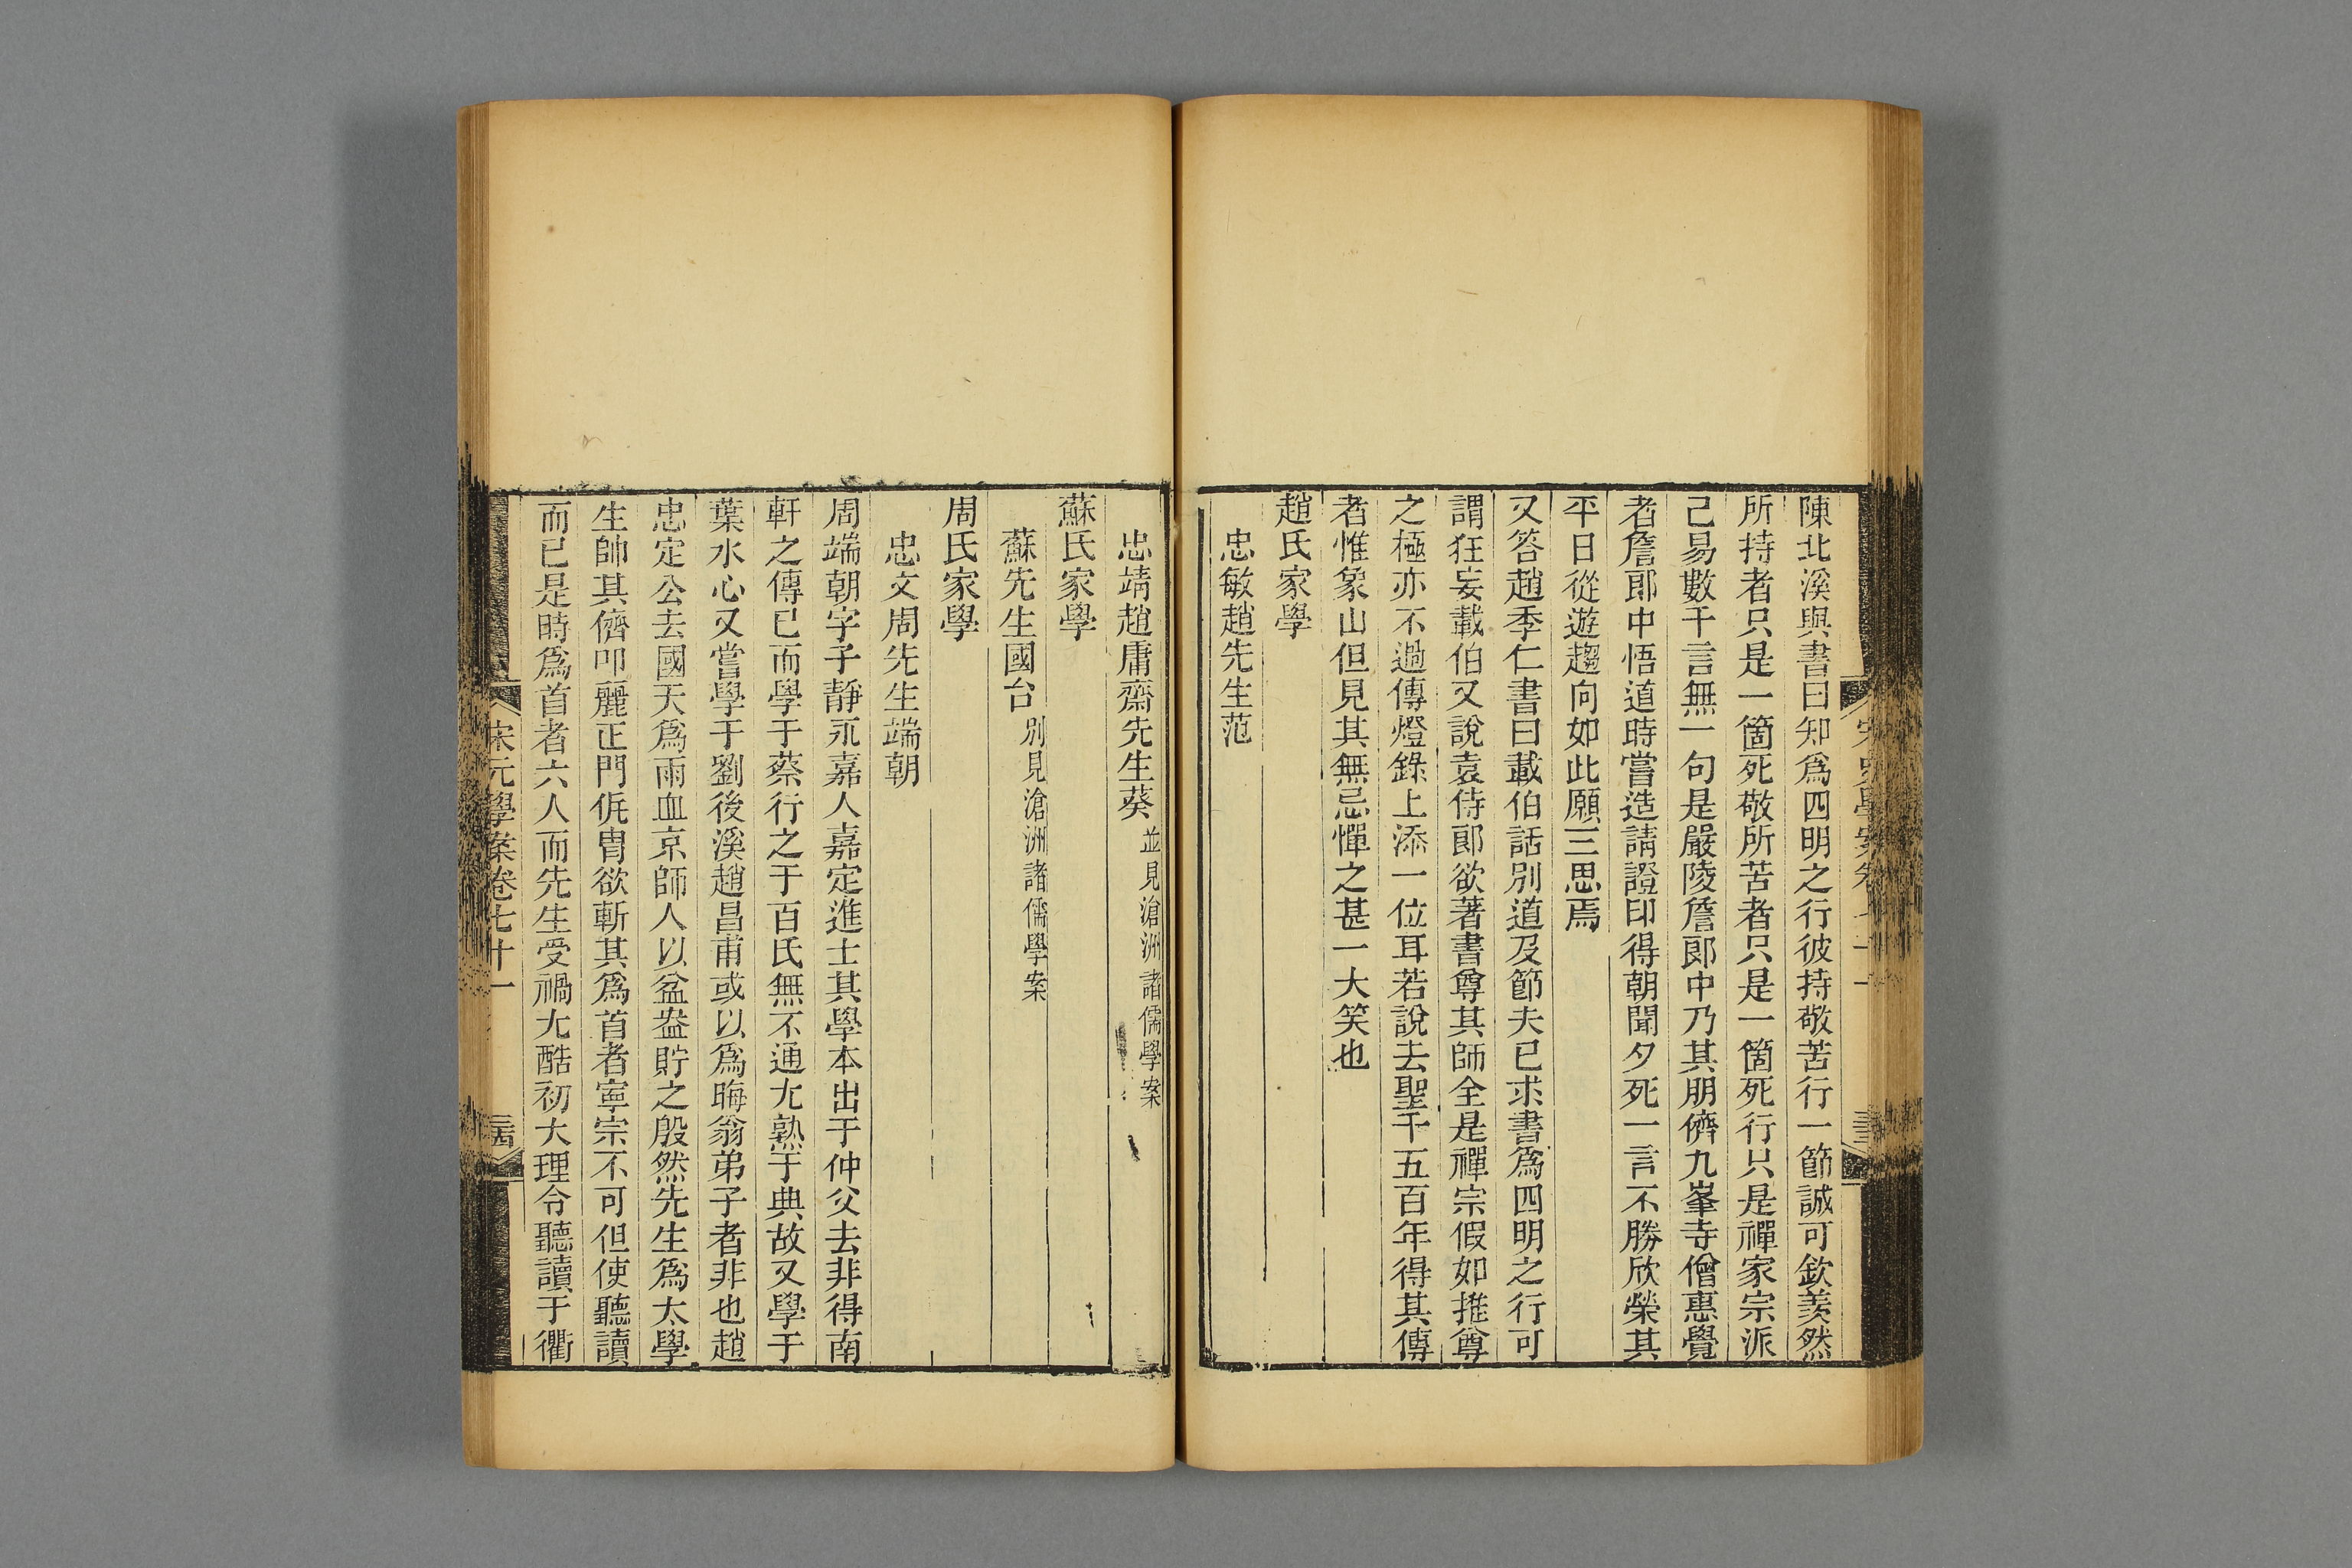 陳北溪與書曰知爲四明之行彼持敬苦行一節誠可欽羨然
所持者只是一箇死敬所苦者只是一箇死行只是禪家宗派
己易數千言無一句是嚴陵詹郎中乃其朋儕九峯寺僧惠覺
者詹郎中悟道時嘗造請證印得朝聞夕死一言不勝欣榮其
平日從遊趨向如此願三思焉
又答趙季仁書曰載伯話別道及節夫已求書爲四明之行可
謂狂妄載伯又說袁侍郎欲著書尊其師全是禪宗假如推尊
之極亦不過傳燈錄上添一位耳若說去聖千五百年得其傳
者惟象山但見其無忌憚之甚一大笑也
趙氏家學
忠敏趙先生范
忠靖趙庸齋先生葵並見滄洲諸儒學案
蘇氏家學
蘇先生國台別見滄洲諸儒學案
周氏家學
忠文周先生端朝
周端朝字子靜永嘉人嘉定進士其學本出于仲父去非得南
軒之傳已而學于蔡行之于百氏無不通尤熟于典故又學于
葉水心又嘗學于劉後溪趙昌甫或以爲晦翁弟子者非也趙
忠定公去國天爲雨血京師人以盆盎貯之殷然先生爲太學
生帥其儕叩麗正門侂冑欲斬其爲首者寧宗不可但使聽讀
而已是時爲首者六人而先生受禍尤酷初大理令聽讀于衢
宋元學案卷七十一